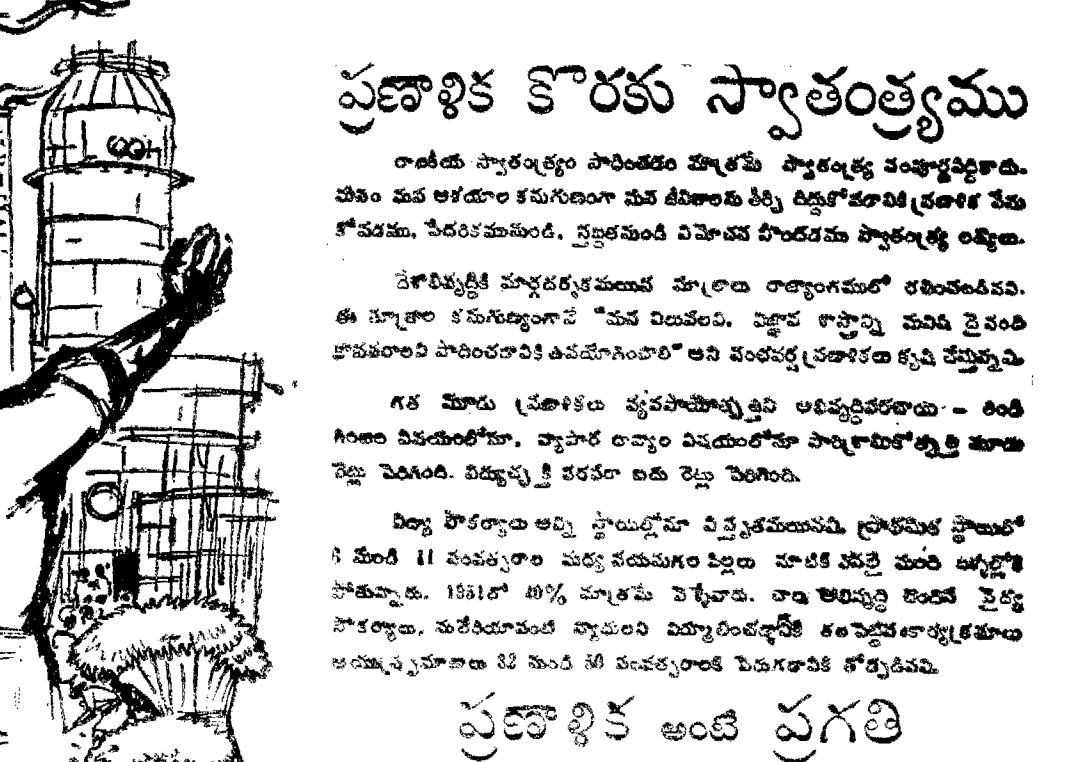 ప్రణాళిక కొరకు స్వాతంత్ర్యము
రాజకీయ స్వాతంత్ర్యం సాధించడం మాత్రమే స్వాతంత్ర్య సంపూర్ణసిద్ధికాదు.
మనం మన ఆశయాల కనుగుణంగా మన జీవితాలను తీర్చి దిద్దుకోవడానికి ప్రణాళిక వేసు
కోవడము, పేదరికమునుండి, స్తబ్దతనుండి విమోచన పొందడము స్వాతంత్ర్య లక్ష్యాలు.
దేశాభివృద్ధికి మార్గదర్శకమయిన సూత్రాలు రాజ్యాంగములో
ఈ సూత్రాల కనుగుణ్యంగానే "మన విలువలవి, విజ్ఞాన శాస్త్రాన్ని మనిషి దైనంది
సాధించడానికి ఉపయోగించాలి" అని పంచవర్ష ప్రణాళికలు కృషి చేస్తున్నవి.
గత మూడు ప్రణాళికలు వ్యవసాయోత్పత్తిని అభివృద్ధిపరచాయి - రెండి
విషయంలోనూ పారిశ్రామికోత్పత్తి మూడు
రెట్లు పెరిగింది. విద్యుచ్ఛక్తి సరఫరా ఐదు రెట్లు పెరిగింది.
విద్యా సౌకర్యాలు అన్ని స్థాయిల్లోనూ విస్తృతమయినవి. ప్రాథమిక స్థాయిలో
6 నుండి 11 సంవత్సరాల మధ్య వయసుగల పిల్లలు నూటికి మంది బళ్ళల్లోకి
పోతున్నారు. 1951లో 40% మాత్రమే వెళ్ళేవారు. అభివృద్ధి చెందినే వైద్య
సౌకర్యాలు, మలేరియావంటి వ్యాధులని నిర్మూలించడానికి తలపెట్టిన కార్యక్రమాలు
ఆయుఃప్రమాణాలు 32 నుండి 50 సంవత్సరాలకి పెరుగడానికి తోడ్పడినవి.
ప్రణాళిక అంటే ప్రగతి